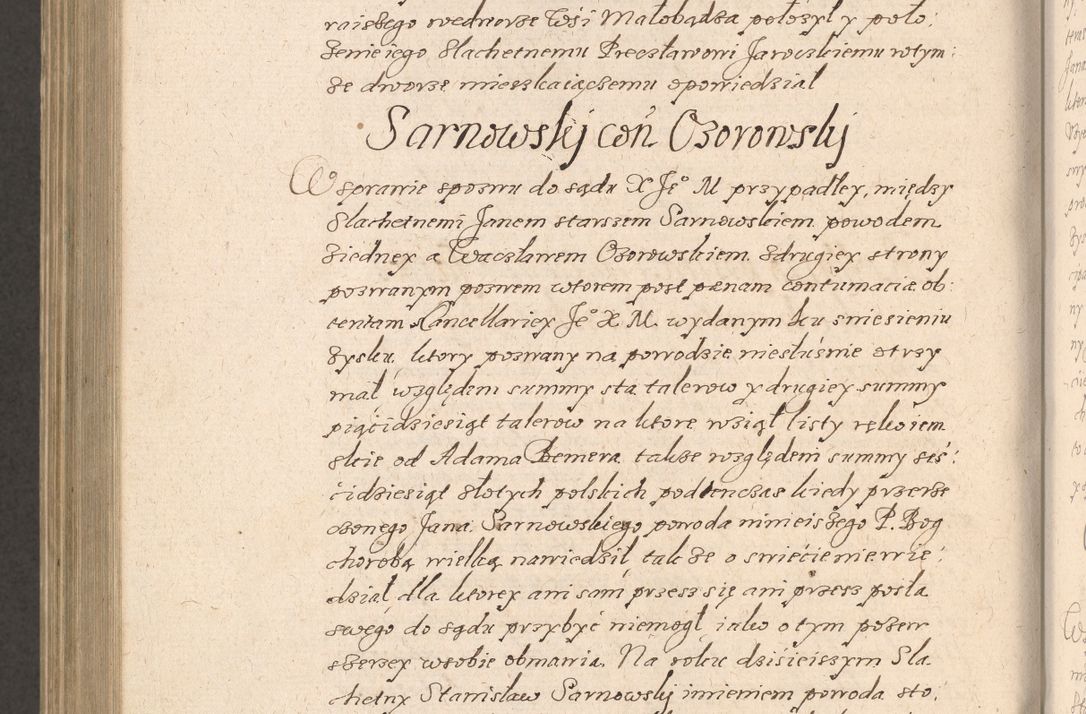 raiszego wednorze Wsi Małobądza połozył y poło:
zenie iego Slachetnemu Przecławowi Jaroczkiemu w tym:
ze dworze mieszkaiącemu opowiedział
Sarnowskij con Ozorowskij
W sprawie spozwu do sądu X Jeº M przypadłey, między
Slachetnemi Janem starszem Sarnowskiem powodem
ziedney a Wacsławem Ozorowskiem zdrugiey strony
pozwanym pozwem wtorem post pænam contumaciæ ob:
tentam Cancellariey Jeº X M. wydanym ku zniesieniu
zysku, ktory pozwany na powodzie niesłusznie otrzy
mał względem summy sta talerow y drugiey summy
piącidziesiąt talerow na ktore wziął listy rękoiem
skie od Adama Bemera takze względem summy sześ:
cidziesiąt złotych polskich podtenczas kiedy przerze
czonego Jana Sarnowskiego powoda ninieiszego P. Bog
chorobą wielką nawiedził takze o swiecie niewie:
dział, dla ktorey ani sam przez się ani przez posła
swego do sądu przybyć niemogł, iako o tym pozew
szerzey wsobie obmawia. Na roku dzisieiszym Sla
chetny Stanisław Sarnowskij imieniem powoda sto,